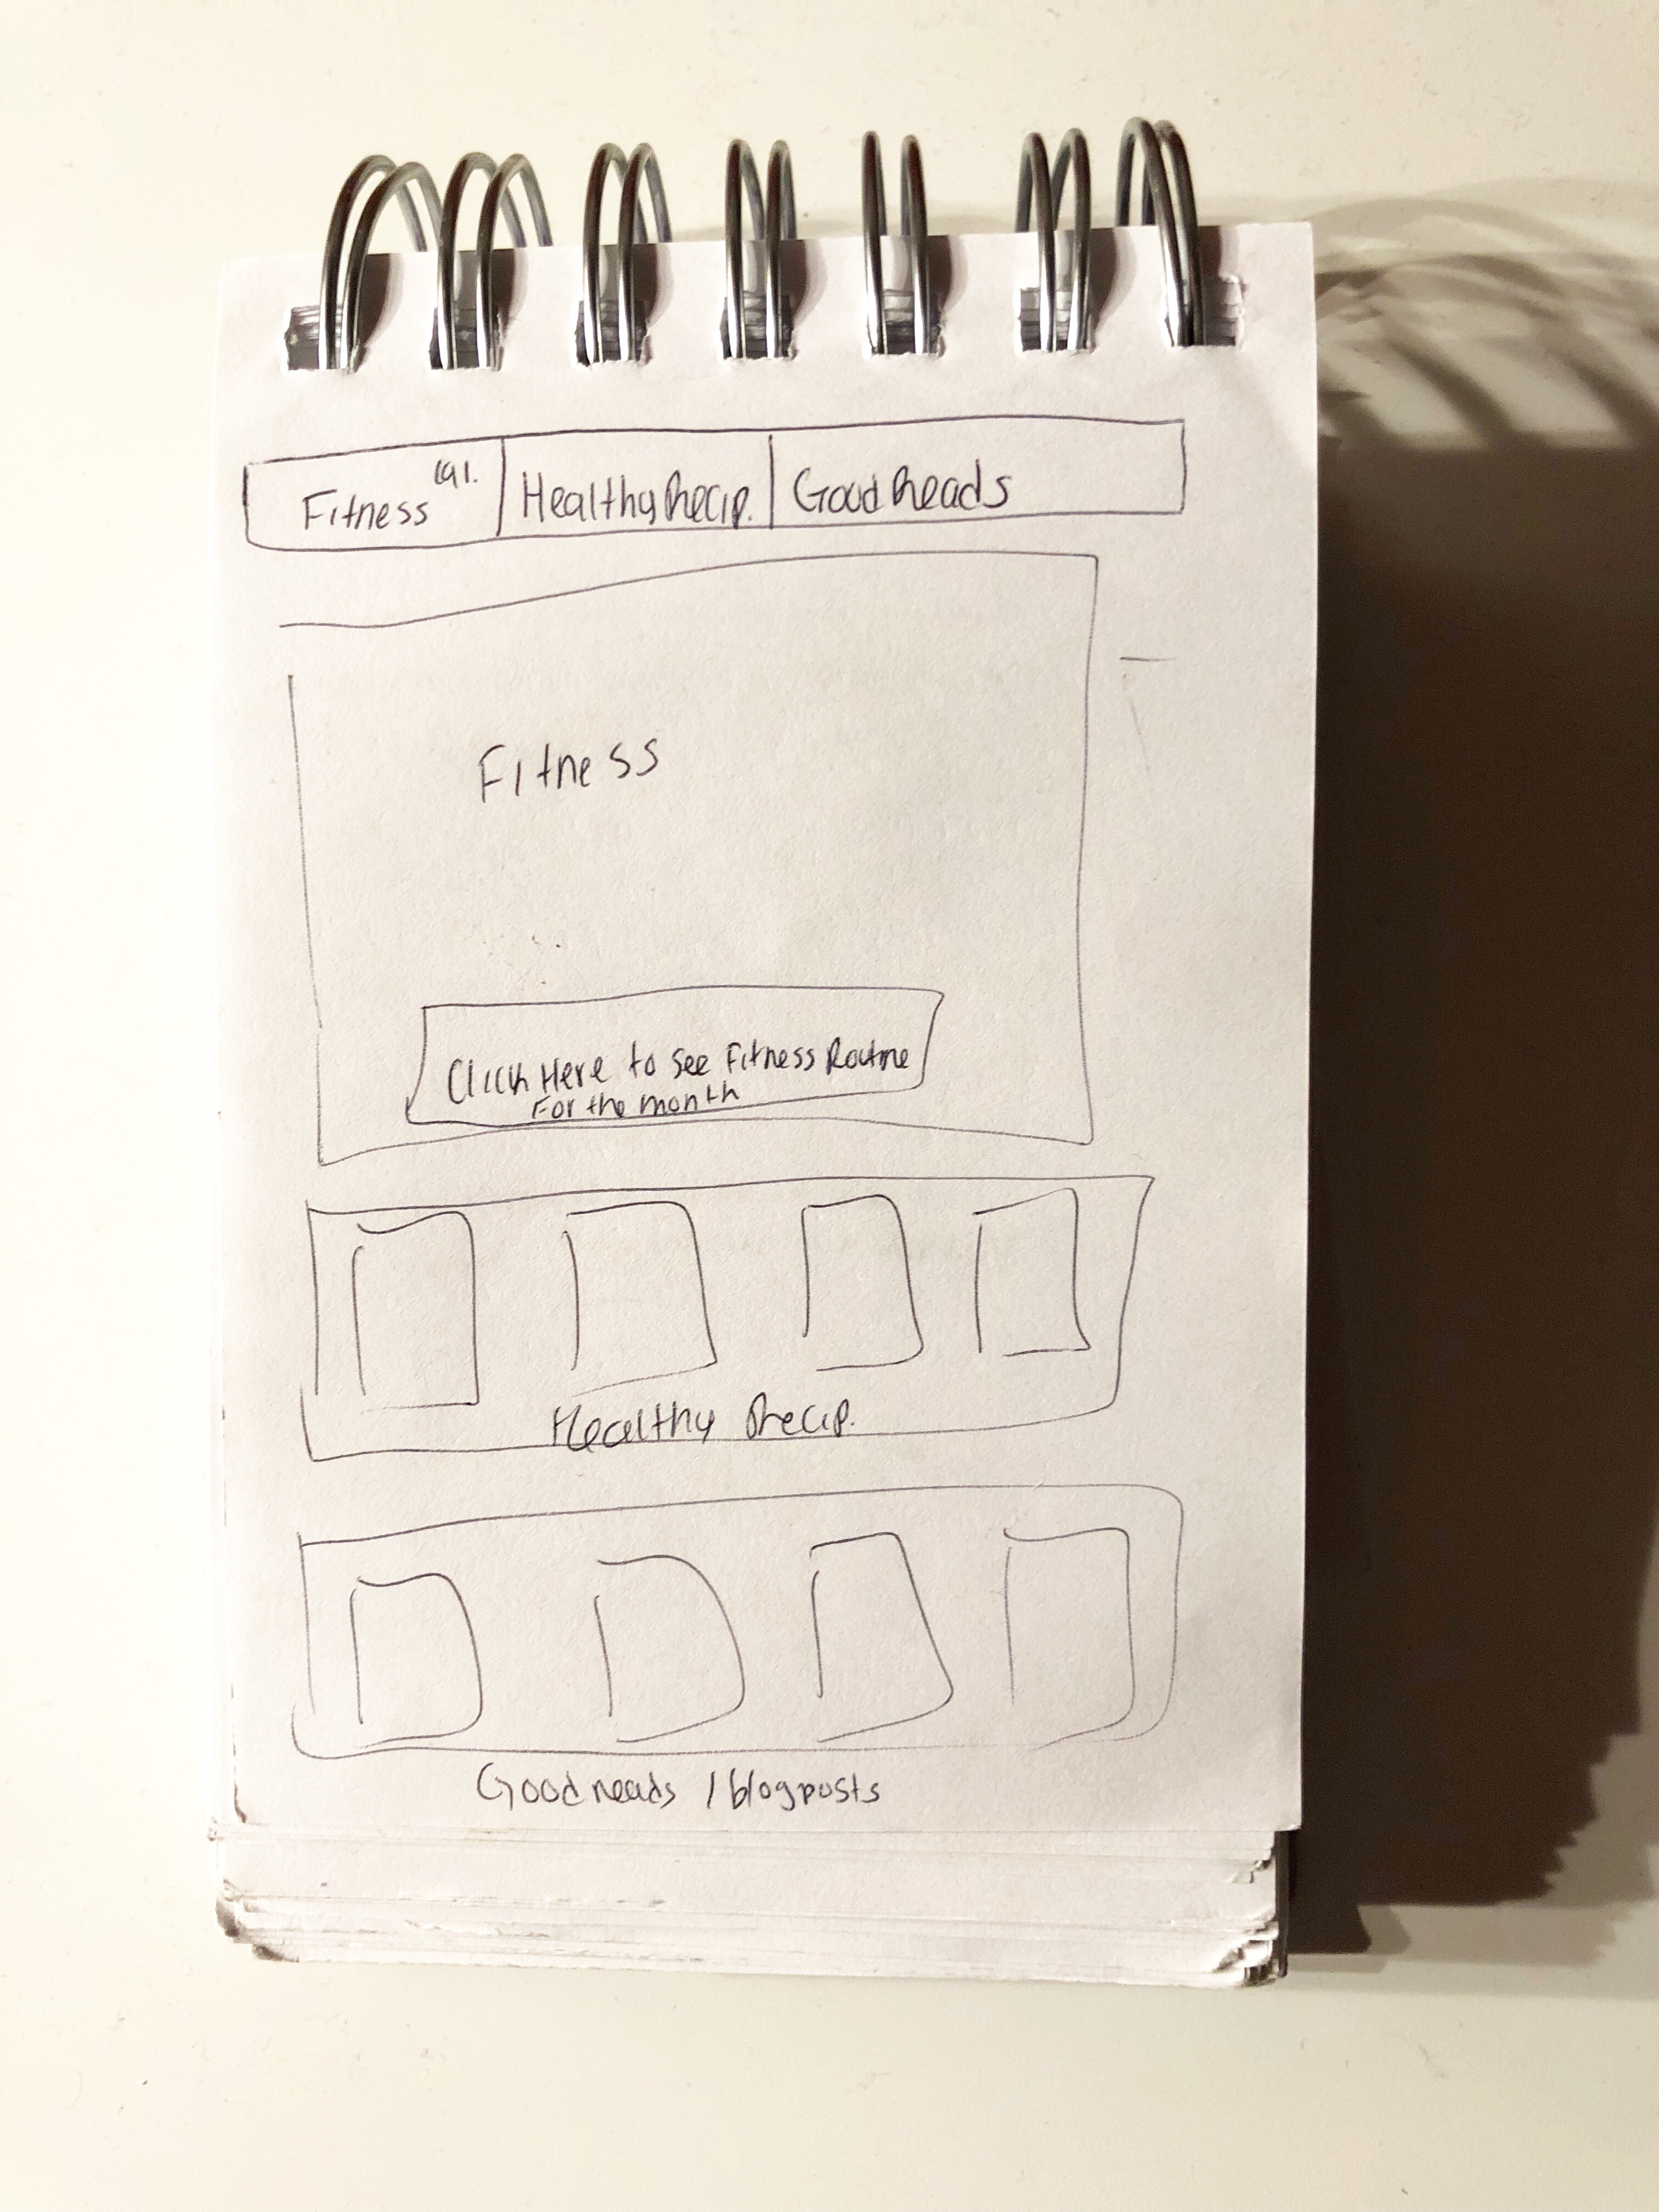 Fitness cal.
Healthy Recip.
Good Reads
Fitness
Click Here to see Fitness Routine
For the month
Healthy Recip.
Good reads / blogposts